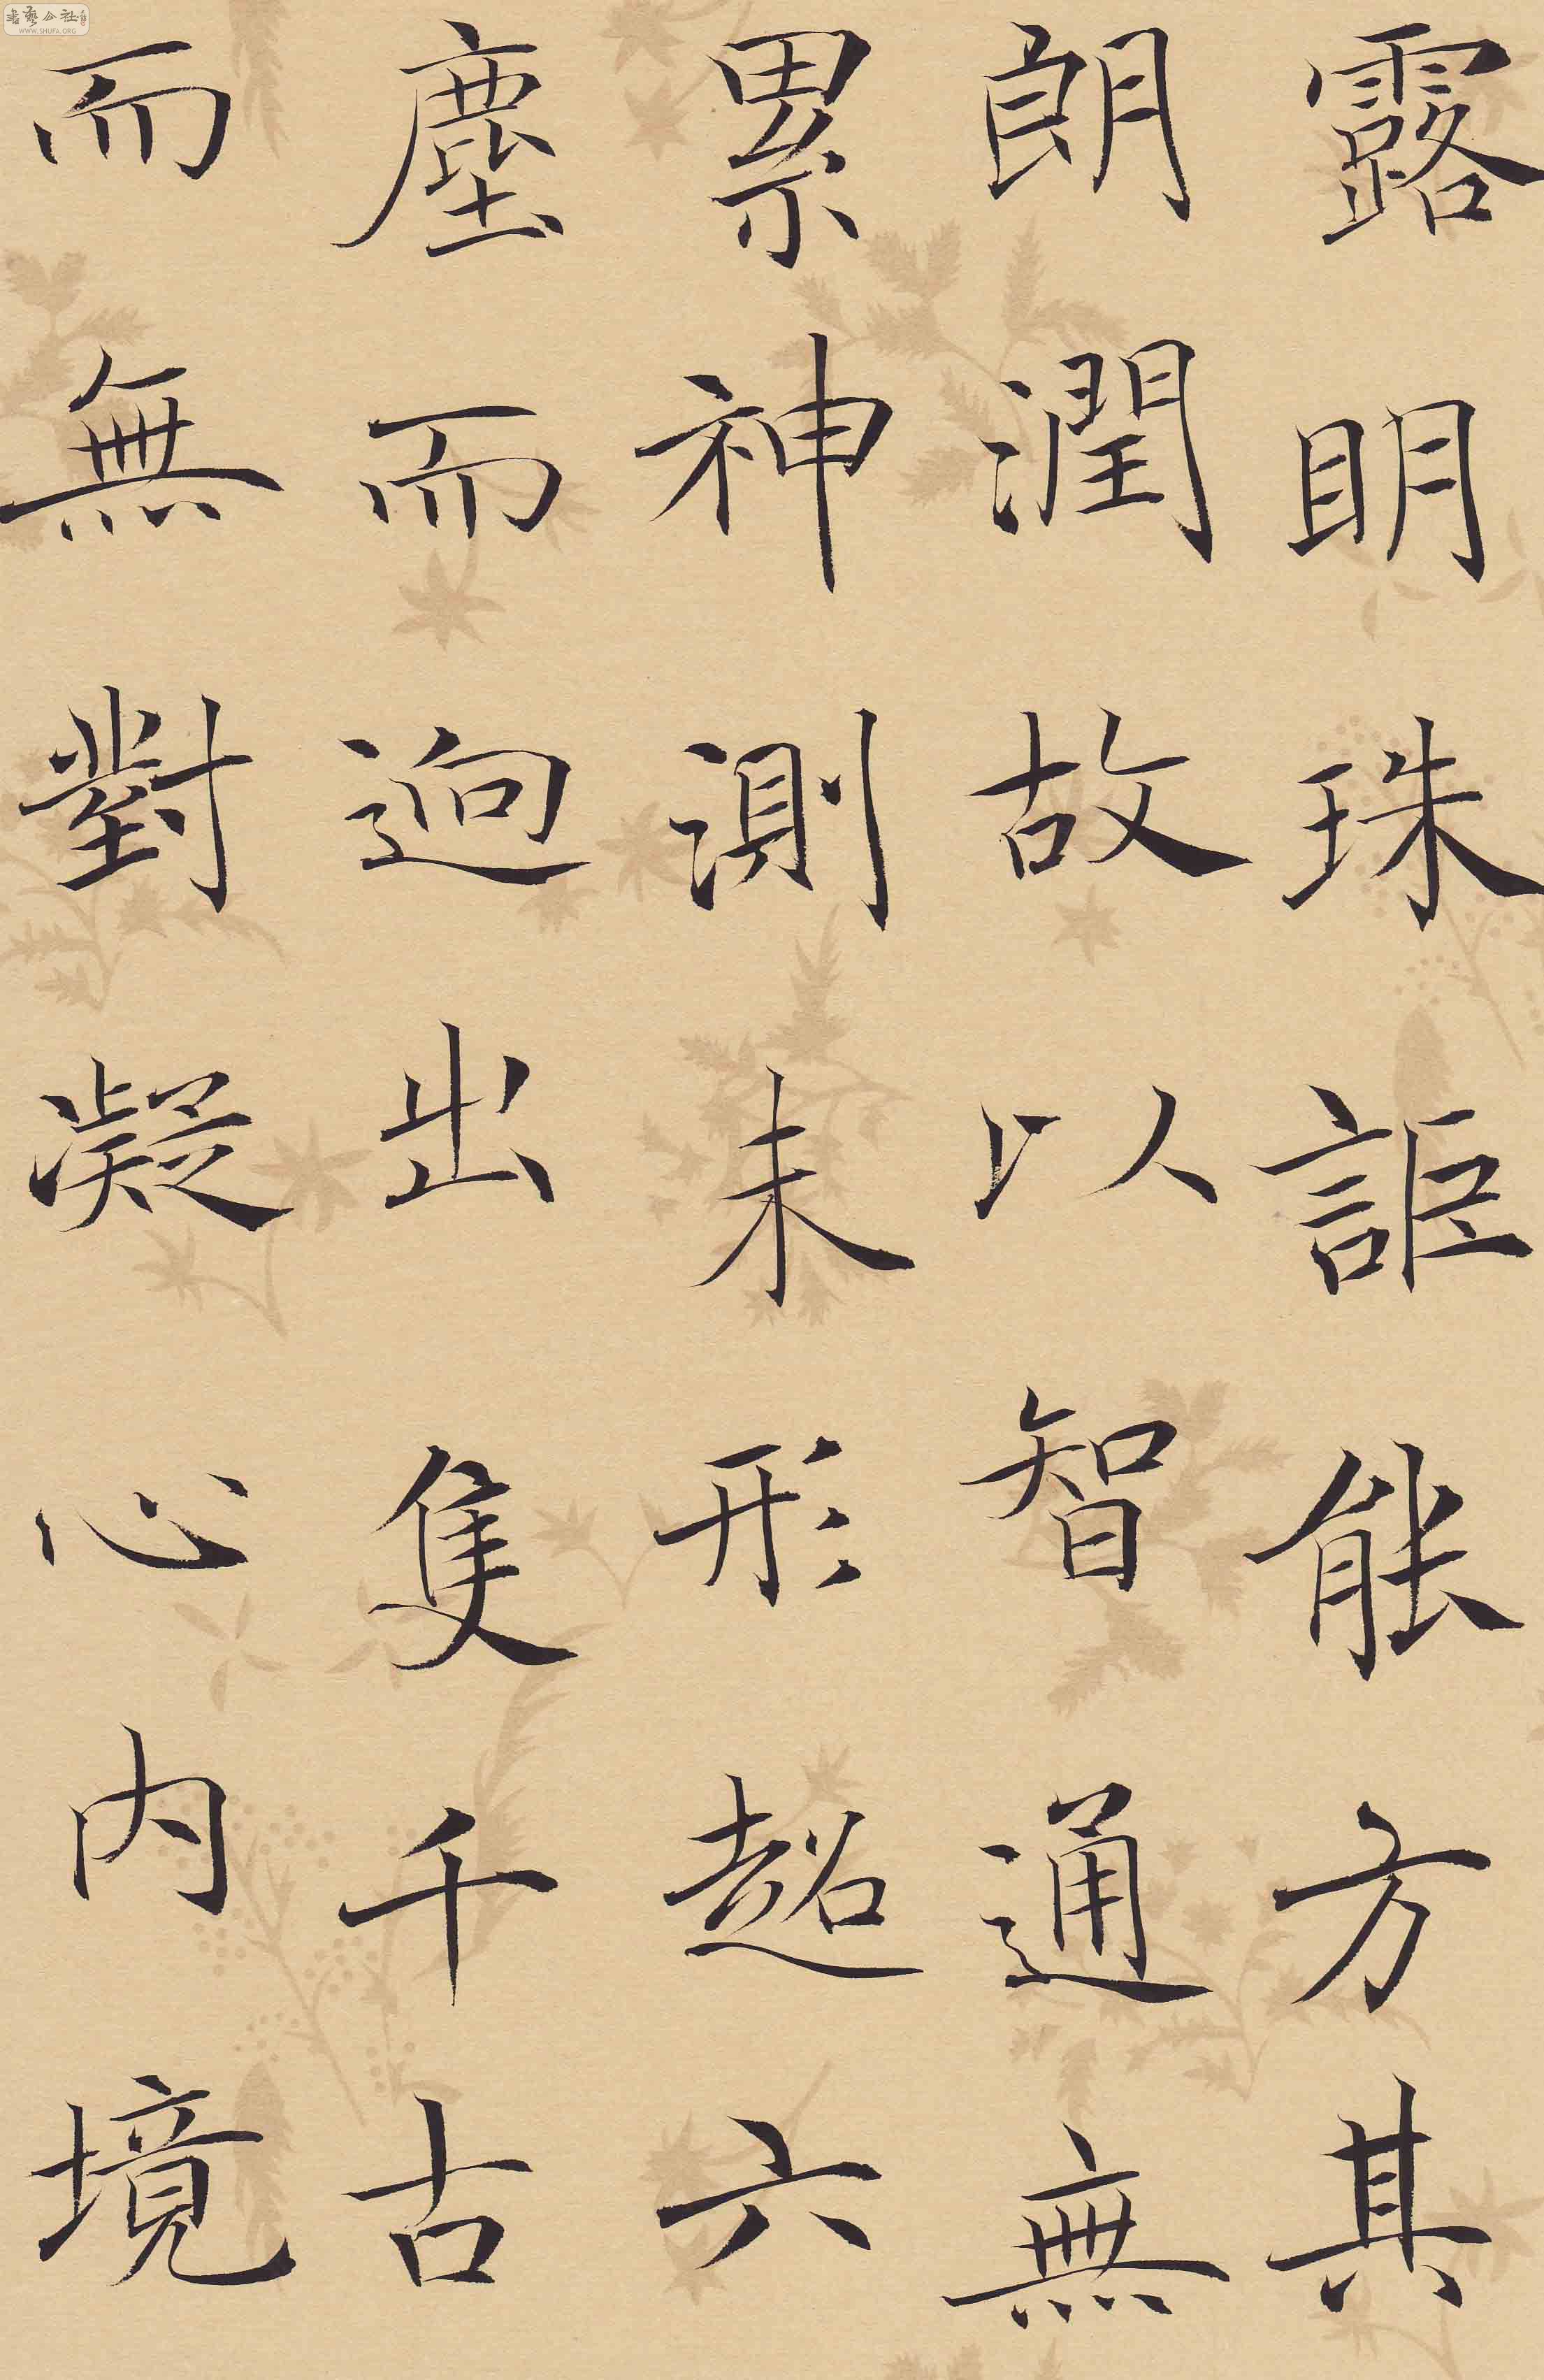 露明珠詎能方其
朗潤故以智通無
累神測未形超六
塵而迥出隻千古
而無對凝心內境
書藝公社
WWW.SHUFA.ORG